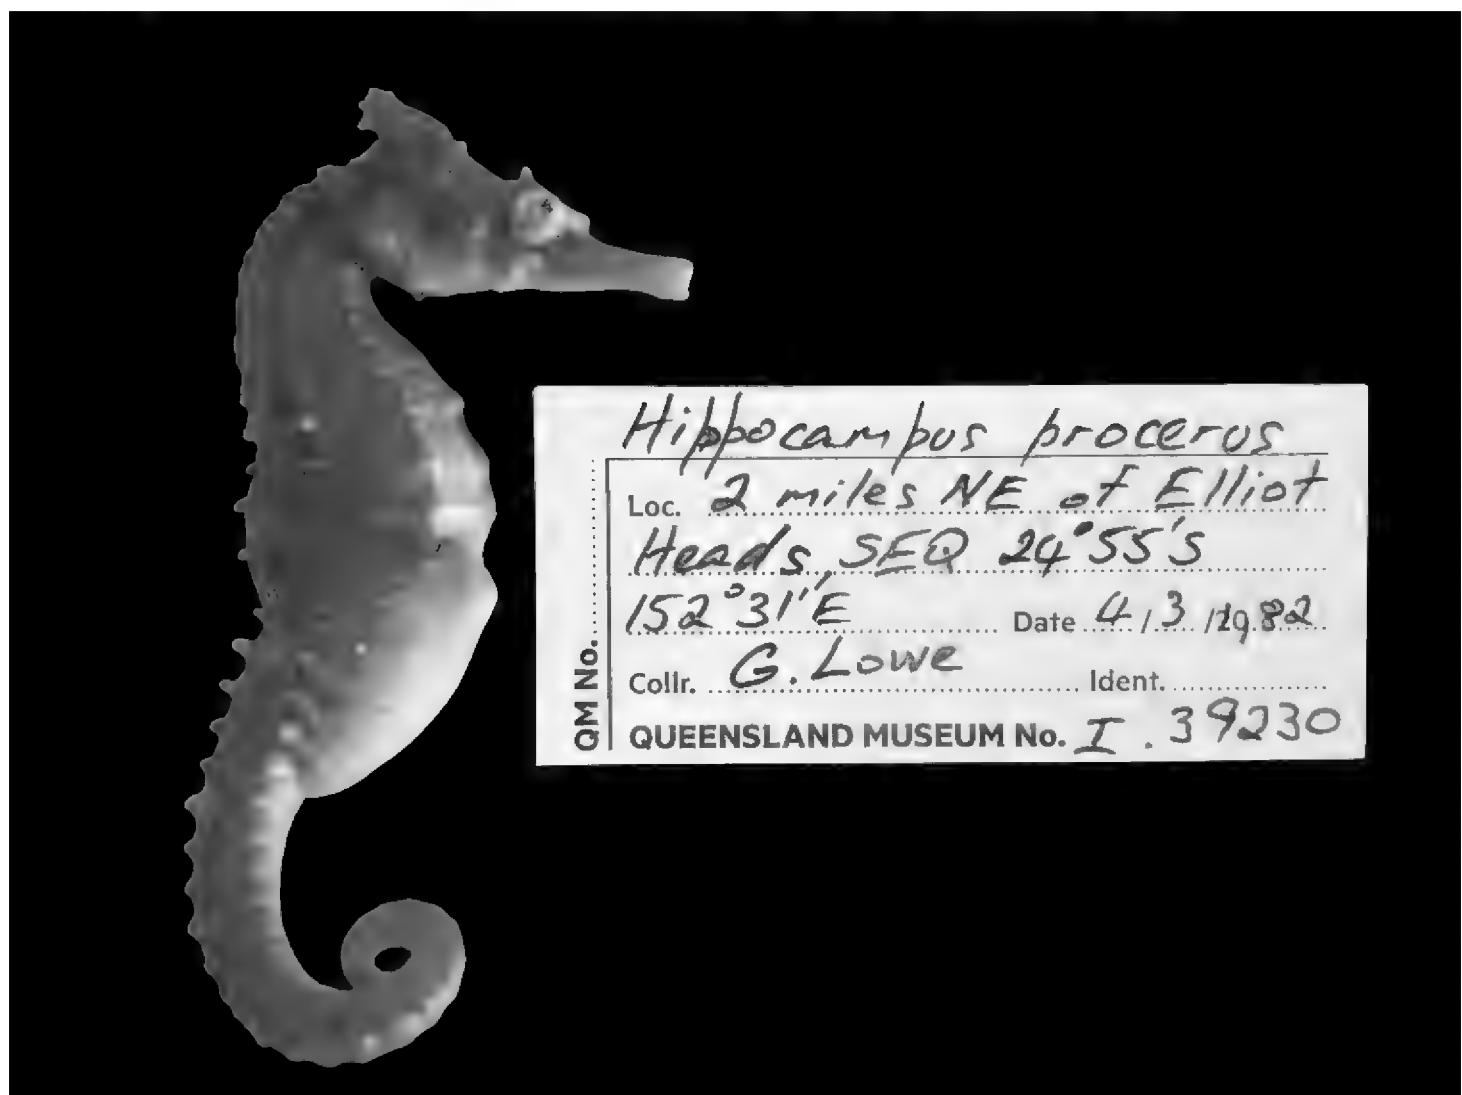 Hippocampus procerus
Loc. 2 miles NE of Elliot
Heads, SEQ 24°55's
152°31'E Date 4/3/1982
Collr. G. Lowe Ident.
QUEENSLAND MUSEUM No. I. 39230
QM No.